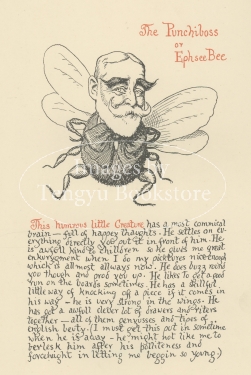 The Punchiboss
or
Ephsee Bee
Images
Tengyu Bookstore
This humorous little Creature has a most commical
brain — full of happey thaughts. He settles on ev-
erything directly you put it in front of him. He
is awfull kind to children so he gives me great
enkurygment when I do my picktures nice enough
which is all most allways now. He does buzz round
you though and prod you up. He likes to get a good
run on the boards sometimes. He has a skillful
little way of knocking off a piece if it comes in
his way — he is very strong in the wings. He
has got a awfull clever lot of drawers and riters
together — all of them genyuses and tipes of
english beuty. (I must get this out in sometime
when he is away — he might not like me to
berlesk him after his polliteness and
forchight in letting me beggin so young.)